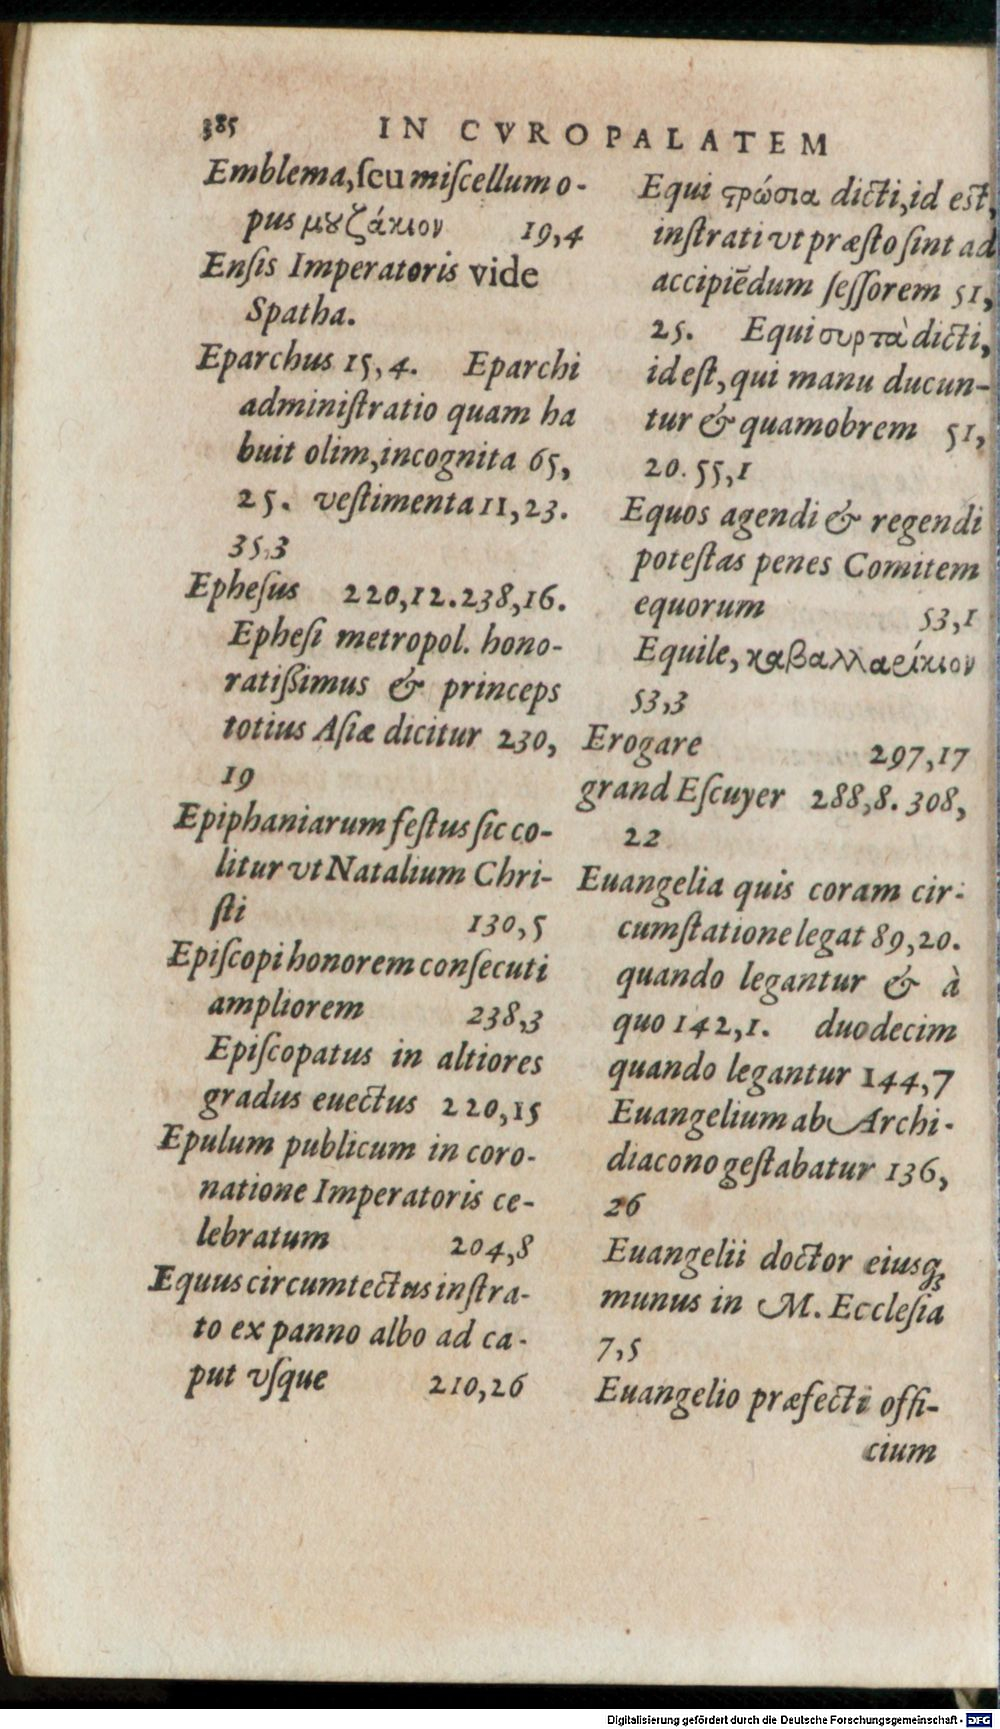 385 IN CVROPALATEM
Emblema, ſeu miſcellum o-
pus μȣζάκιον 19,4
Enſis Imperatoris vide
Spatha.
Eparchus 15,4. Eparchi
adminiſtratio quam ha
buit olim, incognita 65,
25. veſtimenta 11,23.
35,3
Epheſus 220,12.238,16.
Epheſi metropol. hono-
ratißimus & princeps
totius Aſiæ dicitur 230,
19
Epiphaniarum feſtus ſic co-
litur vt Natalium Chri-
ſti 130,5
Epiſcopi honorem conſecuti
ampliorem 238,3
Epiſcopatus in altiores
gradus euectus 220,15
Epulum publicum in coro-
natione Imperatoris ce-
lebratum 204,8
Equus circumtectus inſtra-
to ex panno albo ad ca-
put vſque 210,26
Equi ϛρώσια dicti, id eſt,
inſtrati vt præſto ſint ad
accipiēdum ſeſſorem 51,
25. Equi συρτὰ dicti,
id eſt, qui manu ducun-
tur & quamobrem 51,
20. 55,1
Equos agendi & regendi
poteſtas penes Comitem
equorum 53,1
Equile, καβαλλαρίκιον
53,3
Erogare 297,17
grand Eſcuyer 288,8. 308,
22
Euangelia quis coram cir-
cumſtatione legat 89,20.
quando legantur & à
quo 142,1. duodecim
quando legantur 144,7
Euangelium ab Archi-
diacono geſtabatur 136,
26
Euangelii doctor eiusq;
munus in M. Eccleſia
7,5
Euangelio præfecti offi-
cium
Digitalisierung gefördert durch die Deutsche Forschungsgemeinschaft - DFG